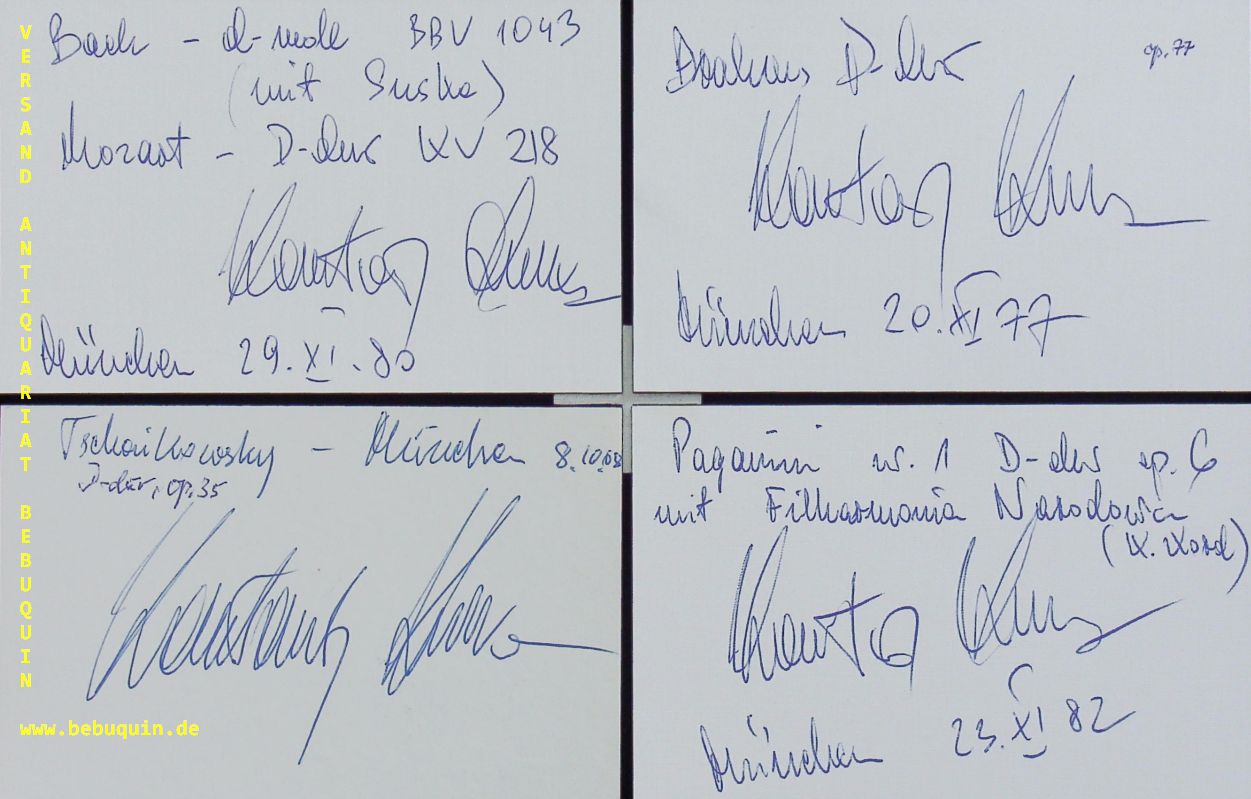 Bach - d-moll BBV 1043
(mit Suske)
Mozart - D-dur KV 218
München 29. XI. 80
Brahms D-dur op. 77
München 20. XI 77
Tschaikowsky - München 8.10.68
D-dur, op. 35
Paganini nr. 1 D-dur op. 6
mit Filharmonia Narodowa
(K. Kord)
München 23. XI 82
VERSAND ANTIQUARIAT BEBUQUIN
www.bebuquin.de